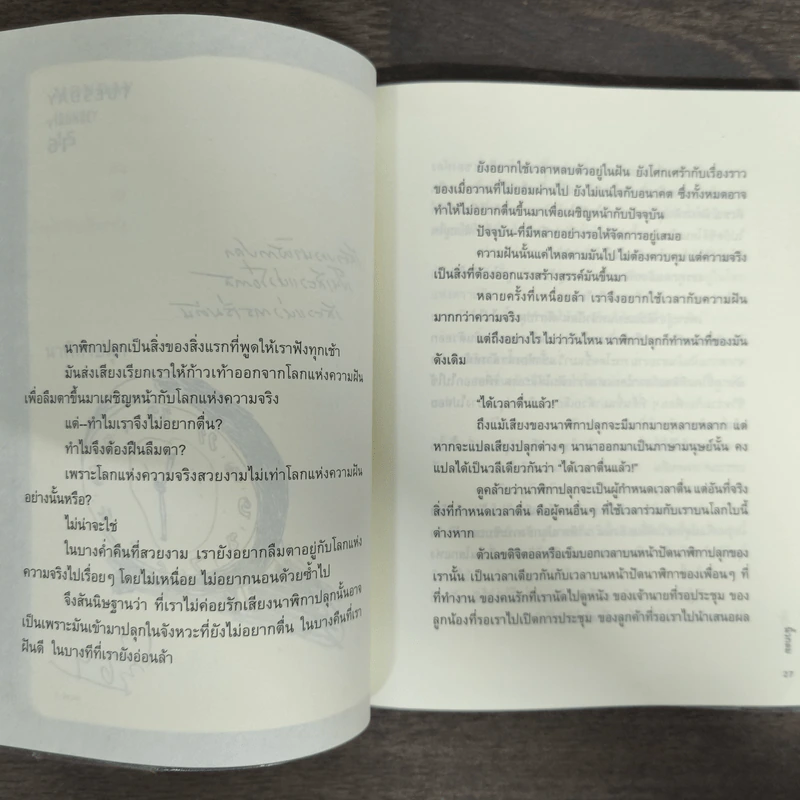 นาฬิกาปลุกเป็นสิ่งของสิ่งแรกที่พูดให้เราฟังทุกเช้า
มันส่งเสียงเรียกเราให้ก้าวเท้าออกจากโลกแห่งความฝัน
เพื่อลืมตาขึ้นมาเผชิญหน้ากับโลกแห่งความจริง
แต่--ทำไมเราจึงไม่อยากตื่น?
ทำไมจึงต้องฝืนลืมตา?
เพราะโลกแห่งความจริงสวยงามไม่เท่าโลกแห่งความฝัน
อย่างนั้นหรือ?
ไม่น่าจะใช่
ในบางค่ำคืนที่สวยงาม เรายังอยากลืมตาอยู่กับโลกแห่ง
ความจริงไปเรื่อยๆ โดยไม่เหนื่อย ไม่อยากนอนด้วยซ้ำไป
จึงสันนิษฐานว่า ที่เราไม่ค่อยรักเสียงนาฬิกาปลุกนั้นอาจ
เป็นเพราะมันเข้ามาปลุกในจังหวะที่ยังไม่อยากตื่น ในบางคืนที่เรา
ฝันดี ในบางทีที่เรายังอ่อนล้า
ยังอยากใช้เวลาหลบตัวอยู่ในฝัน ยังโศกเศร้ากับเรื่องราว
ของเมื่อวานที่ไม่ยอมผ่านไป ยังไม่แน่ใจกับอนาคต ซึ่งทั้งหมดอาจ
ทำให้ไม่อยากตื่นขึ้นมาเพื่อเผชิญหน้ากับปัจจุบัน
ปัจจุบัน-ที่มีหลายอย่างรอให้จัดการอยู่เสมอ
ความฝันนั้นแค่ไหลตามมันไป ไม่ต้องควบคุม แต่ความจริง
เป็นสิ่งที่ต้องออกแรงสร้างสรรค์มันขึ้นมา
หลายครั้งที่เหนื่อยล้า เราจึงอยากใช้เวลากับความฝัน
มากกว่าความจริง
แต่ถึงอย่างไร ไม่ว่าวันไหน นาฬิกาปลุกก็ทำหน้าที่ของมัน
ดังเดิม
“ได้เวลาตื่นแล้ว!”
ถึงแม้เสียงของนาฬิกาปลุกจะมีมากมายหลายหลาก แต่
หากจะแปลเสียงปลุกต่างๆ นานาออกมาเป็นภาษามนุษย์นั้น คง
แปลได้เป็นวลีเดียวกันว่า “ได้เวลาตื่นแล้ว!”
ดูคล้ายว่านาฬิกาปลุกจะเป็นผู้กำหนดเวลาตื่น แต่อันที่จริง
สิ่งที่กำหนดเวลาตื่น คือผู้คนอื่นๆ ที่ใช้เวลาร่วมกับเราบนโลกใบนี้
ต่างหาก
ตัวเลขดิจิตอลหรือเข็มบอกเวลาบนหน้าปัดนาฬิกาปลุกของ
เรานั้น เป็นเวลาเดียวกันกับเวลาบนหน้าปัดนาฬิกาของเพื่อนๆ ที่
ที่ทำงาน ของคนรักที่เรานัดไปดูหนัง ของเจ้านายที่รอประชุม ของ
ลูกน้องที่รอเราไปเปิดการประชุม ของลูกค้าที่รอเราไปนำเสนอผล
27